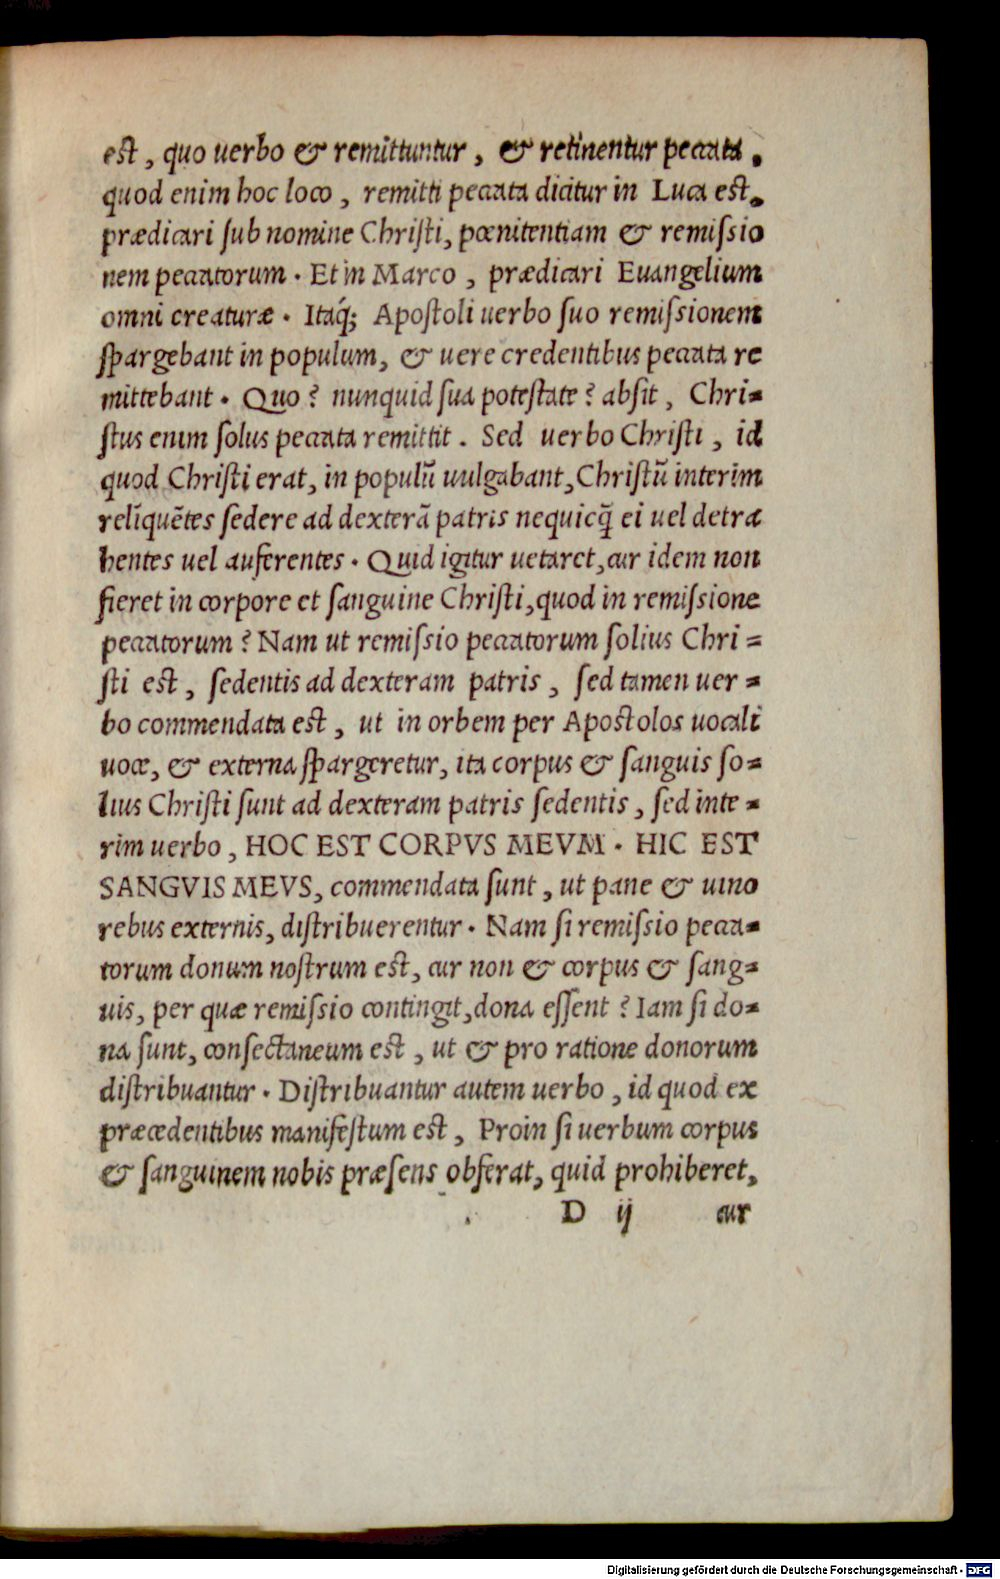 est, quo uerbo & remittuntur, & retinentur peccata.
quod enim hoc loco, remitti peccata dicitur in Luca est.
prædicari sub nomine Christi, pœnitentiam & remissio
nem peccatorum. Et in Marco, prædicari Euangelium
omni creaturæ. Itaq́; Apostoli uerbo suo remissionem
spargebant in populum, & uere credentibus peccata re
mittebant. Quo? nunquid sua potestate? absit, Chri=
stus enim solus peccata remittit. Sed uerbo Christi, id
quod Christi erat, in populū uulgabant, Christū interim
relīquētes sedere ad dexterā patris nequicq̄ ei uel detra
hentes uel auferentes. Quid igitur uetaret, cur idem non
fieret in corpore et sanguine Christi, quod in remissione
peccatorum? Nam ut remissio peccatorum solius Chri=
sti est, sedentis ad dexteram patris, sed tamen uer=
bo commendata est, ut in orbem per Apostolos uocali
uoce, & externa spargeretur, ita corpus & sanguis so=
lius Christi sunt ad dexteram patris sedentis, sed inte=
rim uerbo, HOC EST CORPVS MEVM. HIC EST
SANGVIS MEVS, commendata sunt, ut pane & uino
rebus externis, distribuerentur. Nam si remissio pecca=
torum donum nostrum est, cur non & corpus & sang=
uis, per quæ remissio contingit, dona essent? Iam si do=
na sunt, consectaneum est, ut & pro ratione donorum
distribuantur. Distribuantur autem uerbo, id quod ex
præcedentibus manifestum est, Proin si uerbum corpus
& sanguinem nobis præsens obferat, quid prohiberet,
D ij cur
Digitalisierung gefördert durch die Deutsche Forschungsgemeinschaft - DFG